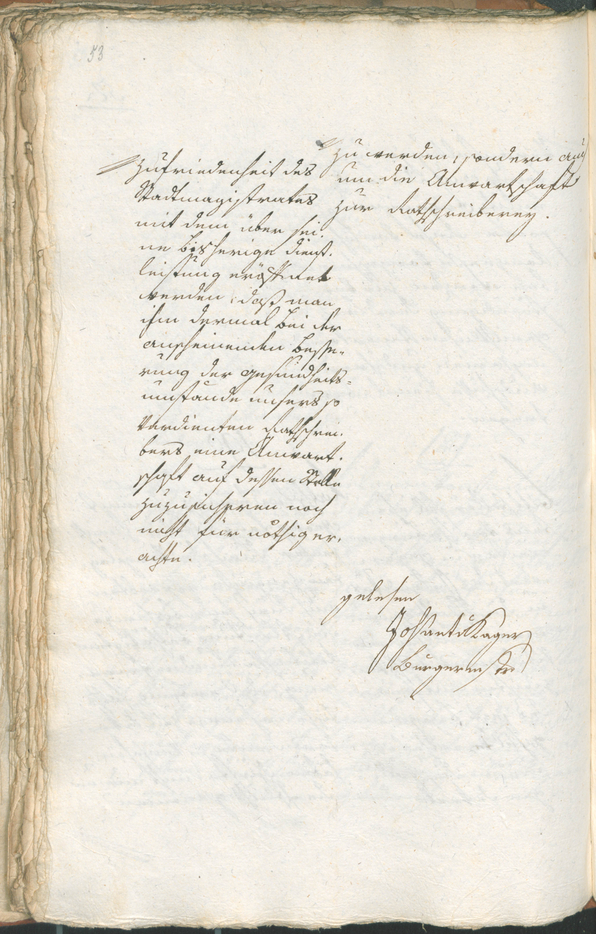 53
Zufriedenheit des
Stadtmagistrates
mit dem über sei-
ne bisherige Dienst-
leistung eröffnet
werden, daß man
ihm dermal bei der
anscheinenden Besse-
rung der Gesundheits-
umstände unsers so
verdienten Rathschrei-
bers eine Anwart-
schaft auf dessen Stelle
zuzusicheren noch
nicht für nöthig er-
achte.
zu werden, sondern auch
um die Anwartschaft
zur Rathschreiberey.
gelesen
Joh
Burgermstr